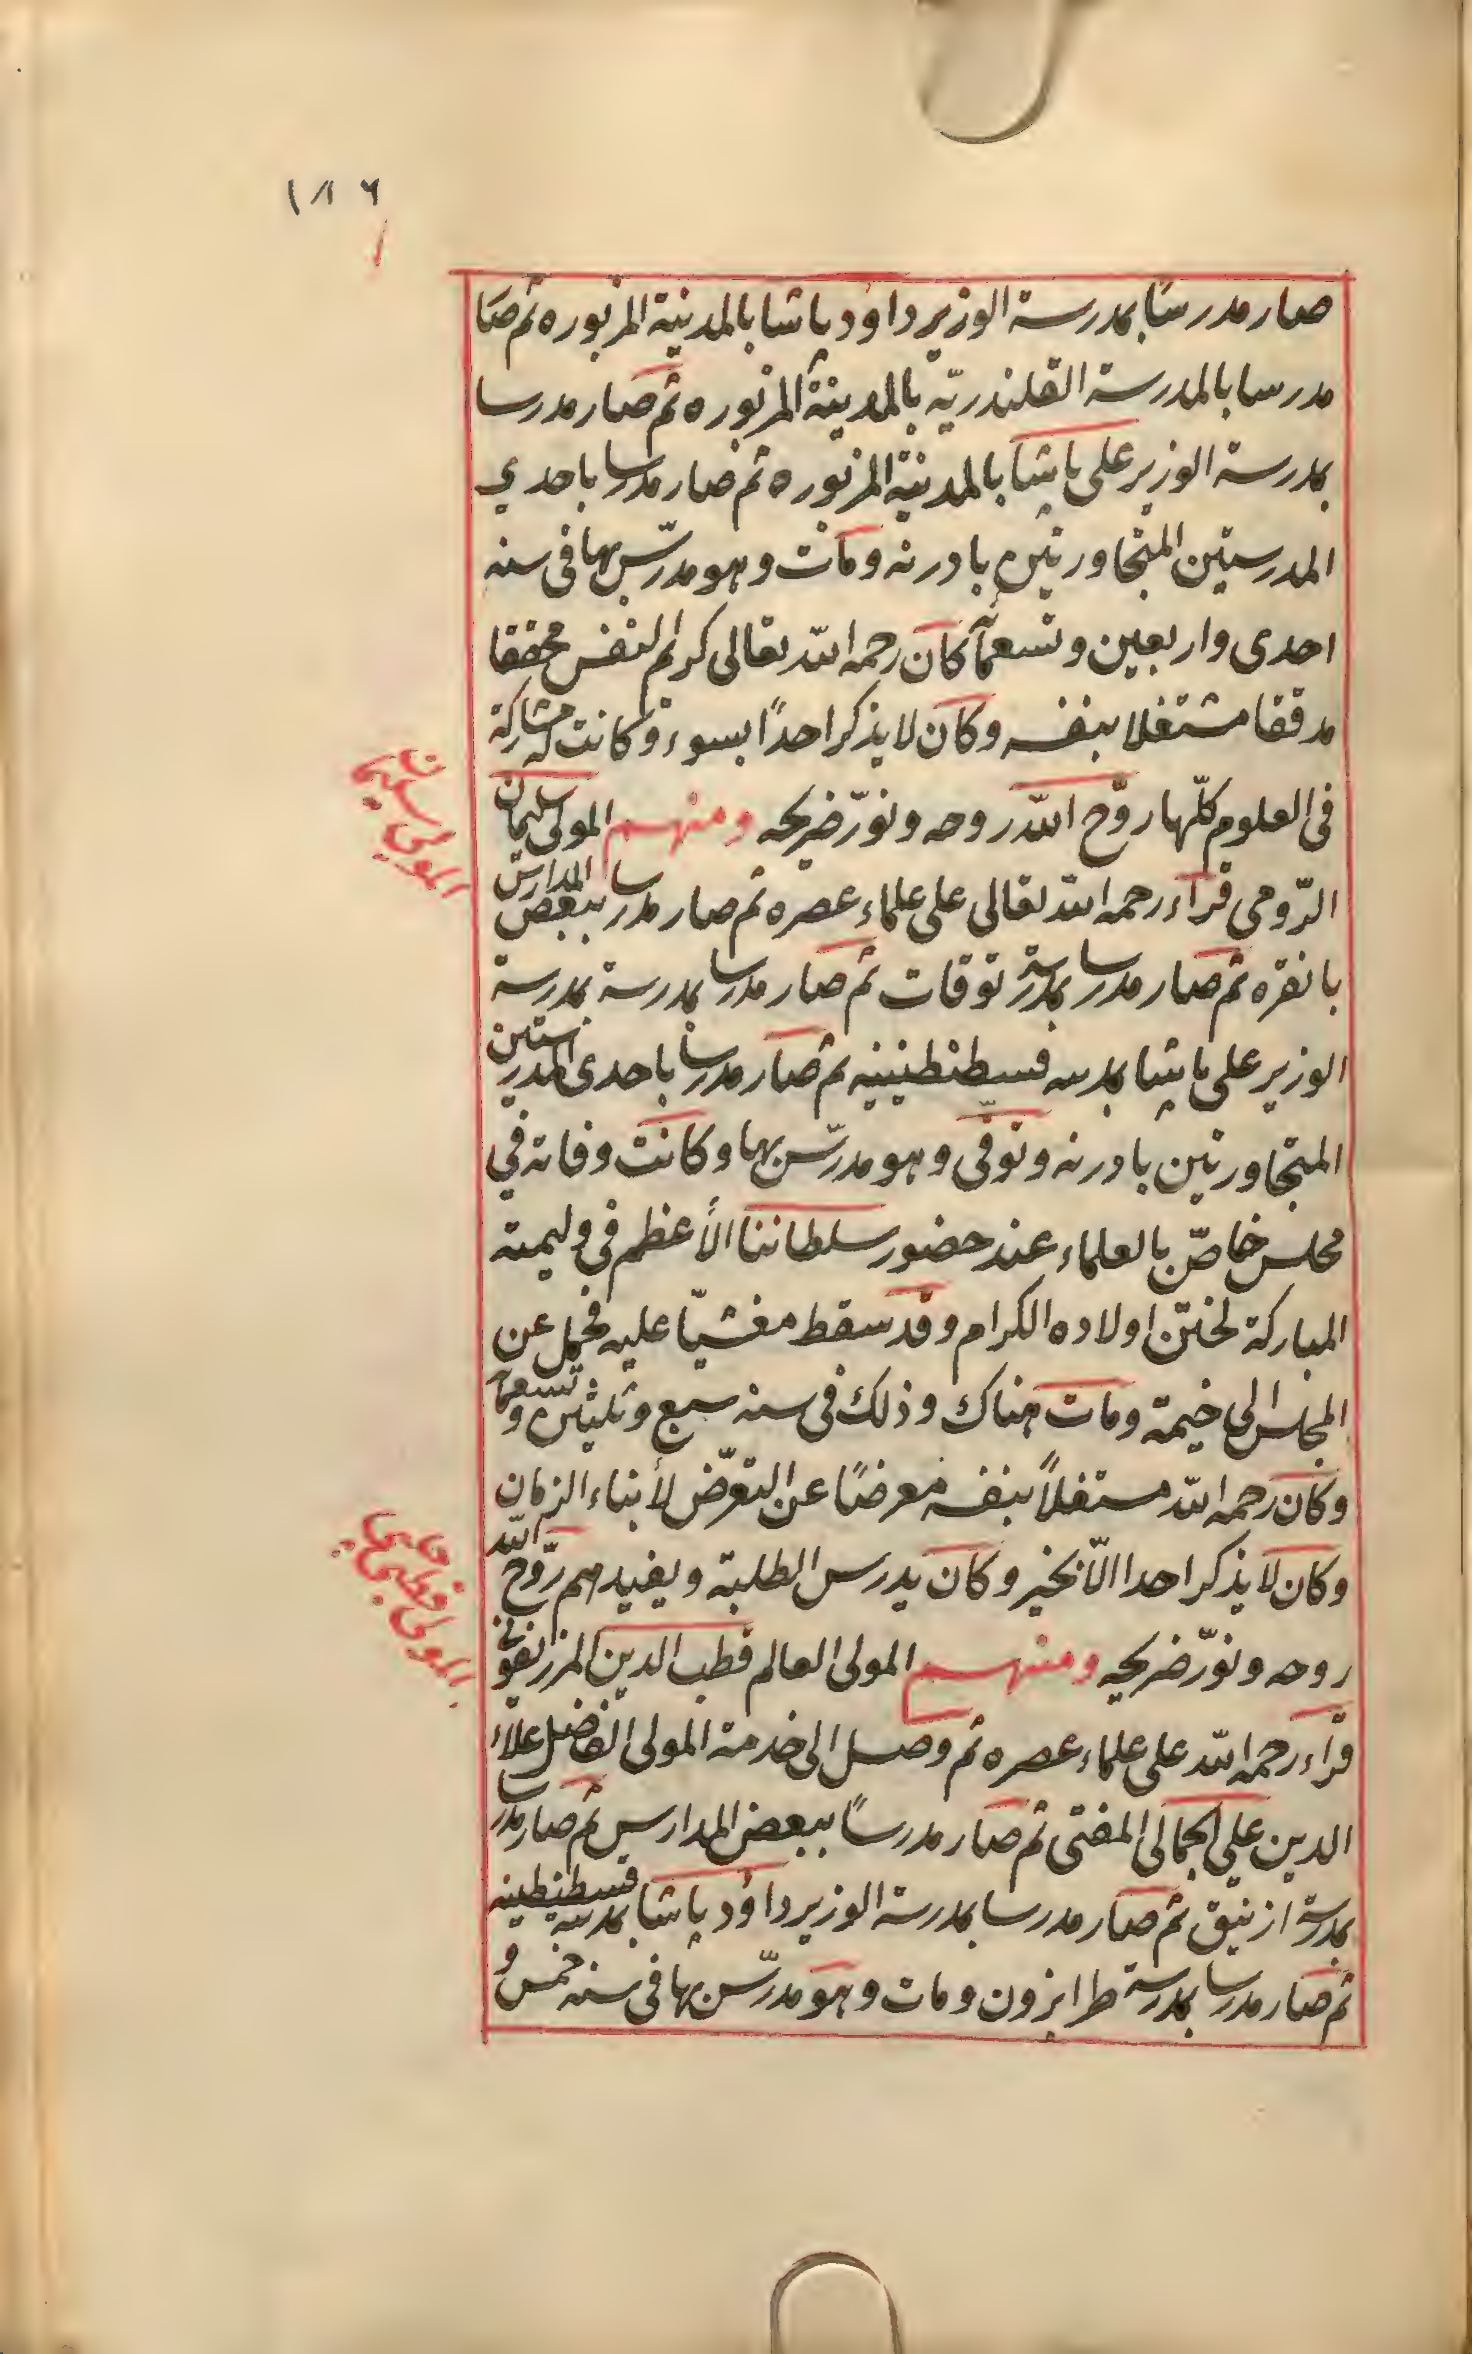 ١٨٦
صار مدرسًا بمدرسة الوزير داود پاشا بالمدينة المزبوره ثم صا
مدرسا بالمدرسة القلندريّه بالمدينة المزبوره ثم صار مدرسا
بمدرسة الوزير على پاشا بالمدينة المزبوره ثم صار مدرسا باحدي
المدرستين المتجاورتين بادرنه ومات وهو مدرّس بها فى سنه
احدى واربعين وتسعمآ كان رحمه اللّه تعالى كريم النفس محققا
مدققا مشتغلا بنفسه وكان لا يذكر احدًا بسوء وكانت له مشاركة
فى العلوم كلّها روّح اللّه روحه ونوّر ضريحه ومنهم المولى سليمان
المولى سليمان
الرّومى قرأء رحمه اللّه تعالى على علماء عصره ثم صار مدرسا ببعض المدارس
بانقره ثم صار مدرسا بمدرسة توقات ثم صار مدرسا بمدرسة بمدرسة
الوزير على پاشا بمدينه قسطنطينيه ثم صار مدرسا باحدى المدرستين
المتجاورتين بادرنه وتوفّى وهو مدرّس بها وكانت وفاته في
مجلس خاصّ بالعلماء عند حضور سلطاننا الأعظم فى وليمته
المباركة لختن اولاده الكرام وقد سقط مغشيّا عليه فحمل عن
المجلس الى خيمة ومات هناك وذلك فى سنه سبع وثلثين وتسعمآ
وكان رحمه اللّه مشتغلاً بنفسه معرضًا عن التعرّض لأبناء الزمان
وكان لا يذكر احدا الّا بخير وكان يدرس الطلبة ويفيدهم روّح اللّه
روحه ونوّر ضريحه ومنهم المولى العالم قطب الدين المرزيفونى
قرأء رحمه اللّه على علماء عصره ثم وصل الى خدمة المولى الفاضل علاء
الدين علي الجمالى المفتى ثم صار مدرسًا ببعض المدارس ثم صار مدرسا
بمدرسة ازنيق ثم صار مدرسا بمدرسة الوزير داؤد پاشا بمدينه قسطنطينيه
ثم صار مدرسا بمدرسة طرابزون ومات وهو مدرّس بها فى سنه خمس و